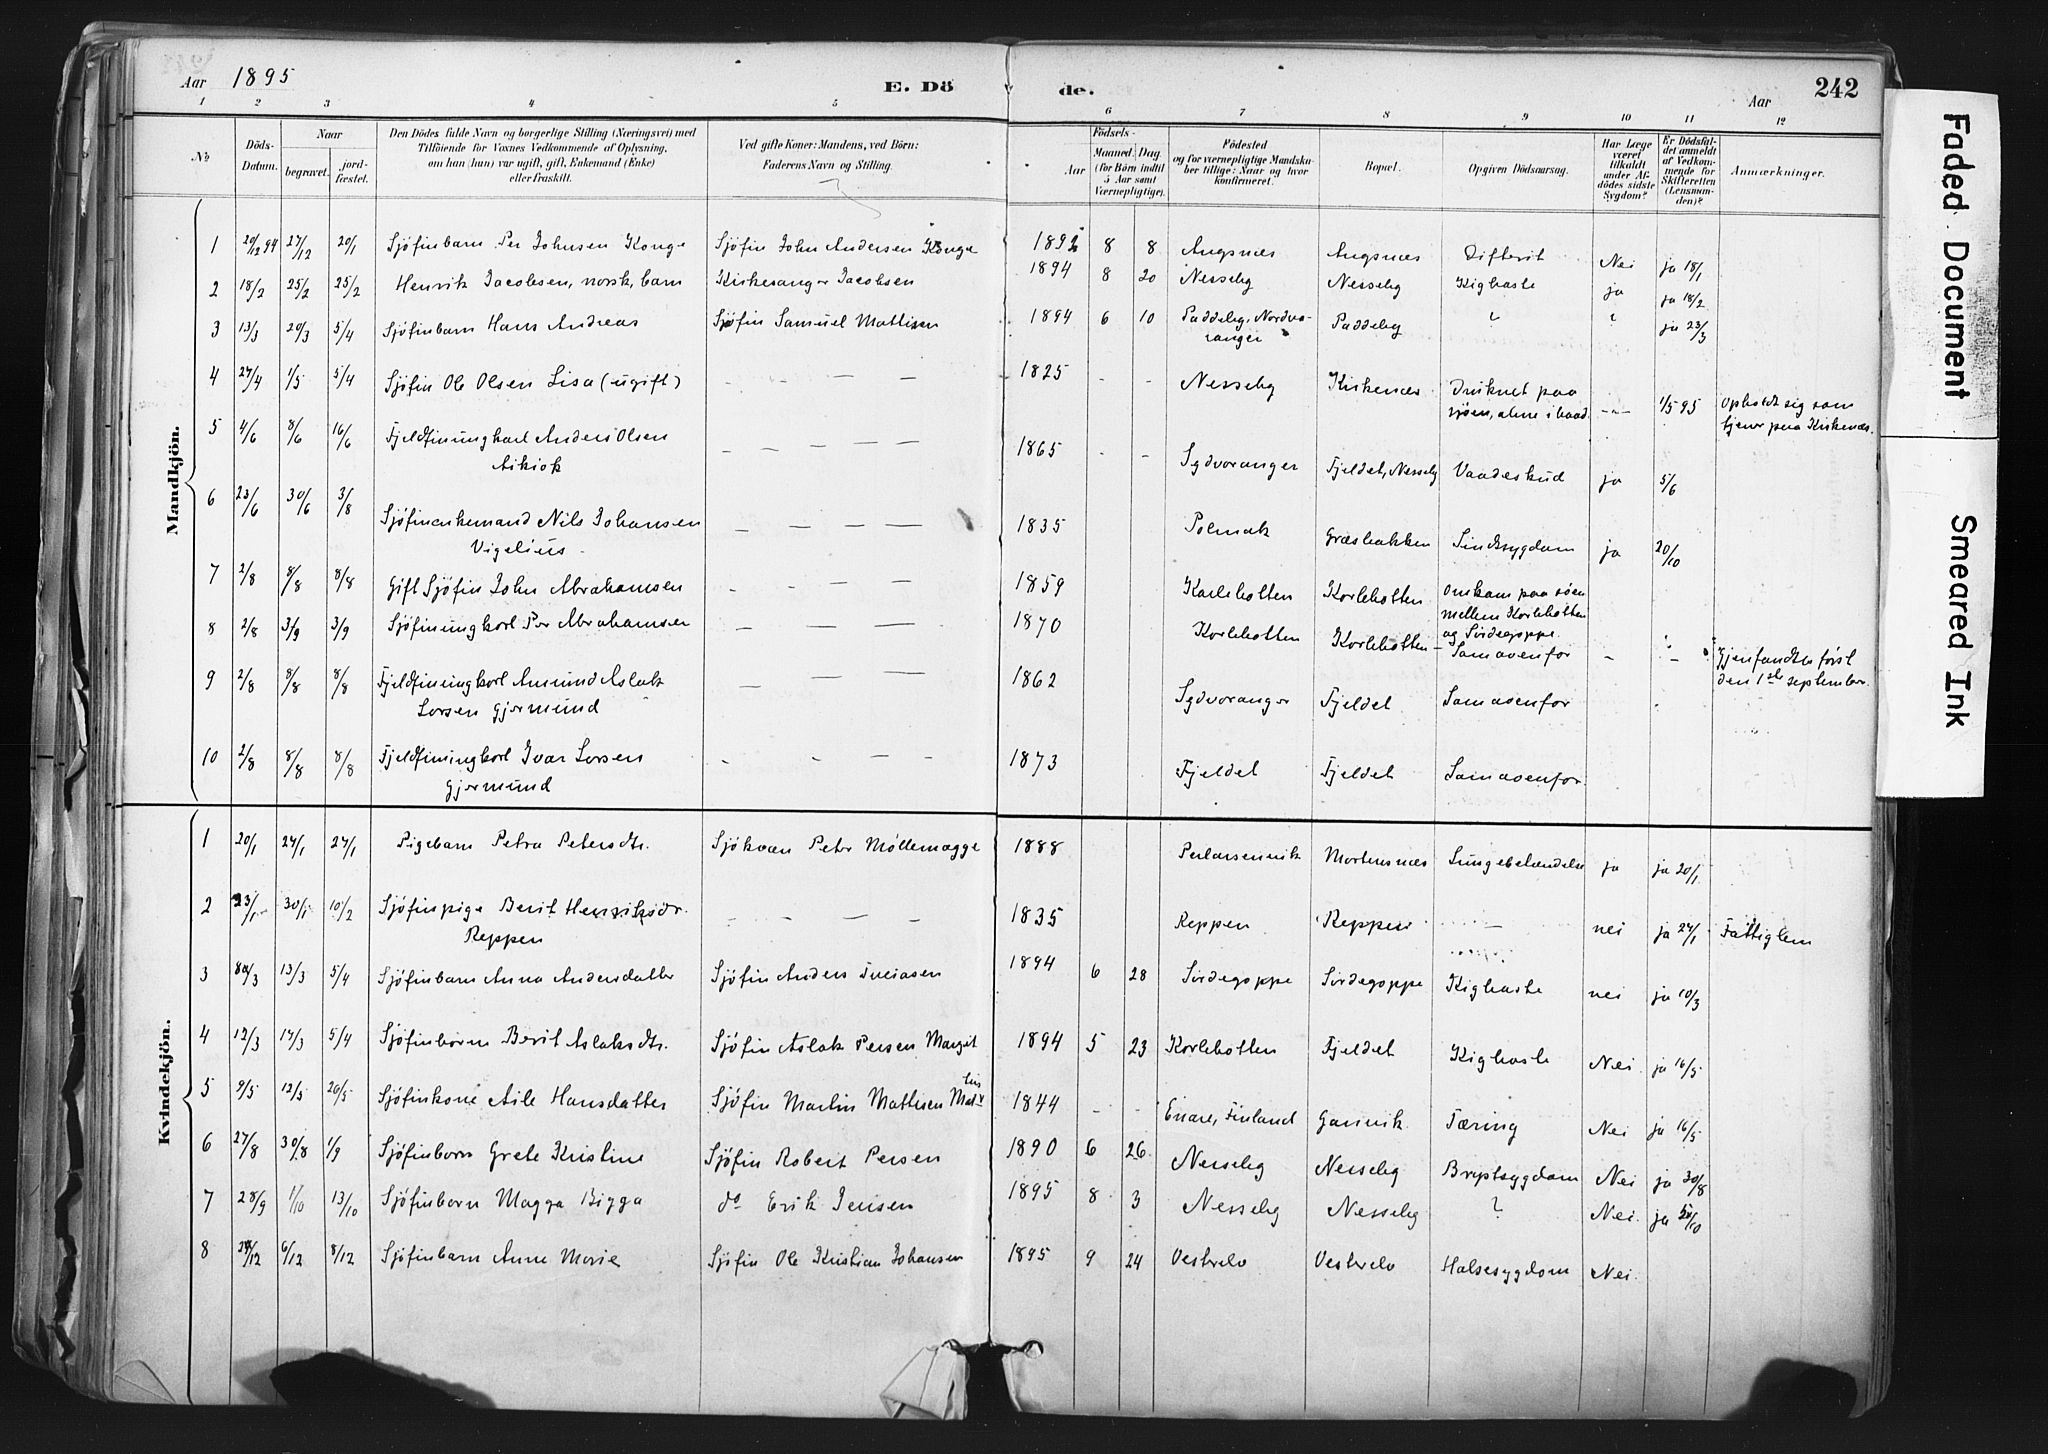 Aar 1895
E. Dö
de.
Aar
242
1 2 3 4 5 6 7 8 9 10 11 12
№
Döds-Datum.
Naar
begravet.
jord-fæstet.
Den Dödes fulde Navn og borgerlige Stilling (Næringsvei) med
Tilföiende for Voxnes Vedkommende af Oplysning,
om han (hun) var ugift, gift, Enkemand (Enke)
eller fraskilt.
Ved gifte Koner: Mandens, ved Börn:
Faderens Navn og Stilling.
Födsels-
Aar
Maaned. Dag
(for Börn indtil
5 Aar samt
Værnepligtige).
Födested
og for værnepligtige Mandska-
ber tillige: Naar og hvor
konfirmeret.
Bopæl.
Opgiven Dödsaarsag.
Har Læge
været
tilkaldt
under Af-
dödes sidste
Sygdom?
Er Dödsfal-
det anmeldt
af Vedkom-
mende for
Skifteretten
(Lensman-
den)?
Anmærkninger.
Mandkjön.
1 20/12 94 27/12 20/1 Sjöfinbarn Per Johnsen Konge Sjöfin John Andersen Konge 1892 8 8 Angsnæs Angsnæs Difterit Nei ja 18/1
2 18/2 25/2 25/2 Henrik Jacobsen, norsk, barn Kirkesanger Jacobsen 1894 8 20 Nesseby Nesseby Kighoste ja ja 18/2
3 13/3 20/3 5/4 Sjöfinbarn Hans Andreas Sjöfin Samuel Mattisen 1894 6 10 Paddeby, Nordva-
ranger Paddeby " " ja 23/3
4 27/4 1/5 5/4 Sjöfin Ole Olsen Lisa (ugift) – – – – 1825 - - Nesseby Kirkenæs Druknet paa
sjöen, alene i baad. --- 1/5 95 Opholdt sig som
tjener paa Kirkenæs.
5 4/6 8/6 16/6 Fjeldfinungkarl Anders Olsen
Aikiok – – – – – 1865 - - Sydvaranger Fjeldet, Nesseby Vaadeskud ja 5/6
6 23/6 30/6 3/8 Sjöfinenkemand Nils Johansen
Vigelius – – – – 1835 Polmak Græsbakken Sindssygdom ja 20/10
7 2/8 8/8 8/8 Gift Sjöfin John Abrahamsen - – – – 1859 Karlebotten Karlebotten omkom paa sjöen
mellem Karlebotten
og Sirdegoppe.
8 2/8 3/9 3/9 Sjöfinungkarl Per Abrahamsen – – – – 1870 Karlebotten Karlebotten – Samaovenfor – – Gjenfandtes først
den 1ste september.
9 2/8 8/8 8/8 Fjeldfinungkarl Amund Aslak
Larsen Gjermund – – – – 1862 Sydvaranger Fjeldet Samaovenfor
10 2/8 8/8 8/8 Fjeldfinungkarl Ivar Larsen
Gjermund - - – - 1873 Fjeldet Fjeldet Samaovenfor.
Kvindekjön.
1 20/1 24/1 24/1 Pigebarn Petra Petersdtr. Sjökvæn Peter Möllemagge 1888 Perlarsenvik Mortensnæs Lungebetændelse ja ja 20/1
2 23/1 30/1 10/2 Sjöfinpige Berit Henriksdr.
Reppen – – – – 1835 Reppen Reppen – nei ja 24/1 Fattiglem
3 /3 13/3 5/4 Sjöfinbarn Anna Andersdatter Sjöfin Anders 1894 6 28 Sirdegoppe Sirdegoppe Kighoste nei ja 10/3
4 12/3 17/3 5/4 Sjöfinbarn Berit Aslaksdtr. Sjöfin Aslak Persen Margit 1894 5 23 Karlebotten Fjeldet Kighoste Nei. ja 16/5
5 9/5 12/5 20/5 Sjöfinkone Aile Hansdatter Sjöfin Martin Mattisen 1844 - - Enare, Finland Ganvik. Tæring Nei ja 16/5
6 27/8 30/8 1/9 Sjöfinbarn Grete Kristine Sjöfin Robert Persen 1890 6 26 Nesseby Nesseby Brystsygdom Nei ja 30/8
7 28/9 1/10 13/10 Sjöfinbarn Magga Bigga do Erik Jensen 1895 8 3 Nesseby Nesseby ? Nei. ja /10
8 /12 6/12 8/12 Sjöfinbarn Anne Marie Sjöfin Ole Kristian Johansen 1895 9 24 Vesterelv Vesterelv Halssygdom Nei.
Faded Document
Smeared Ink